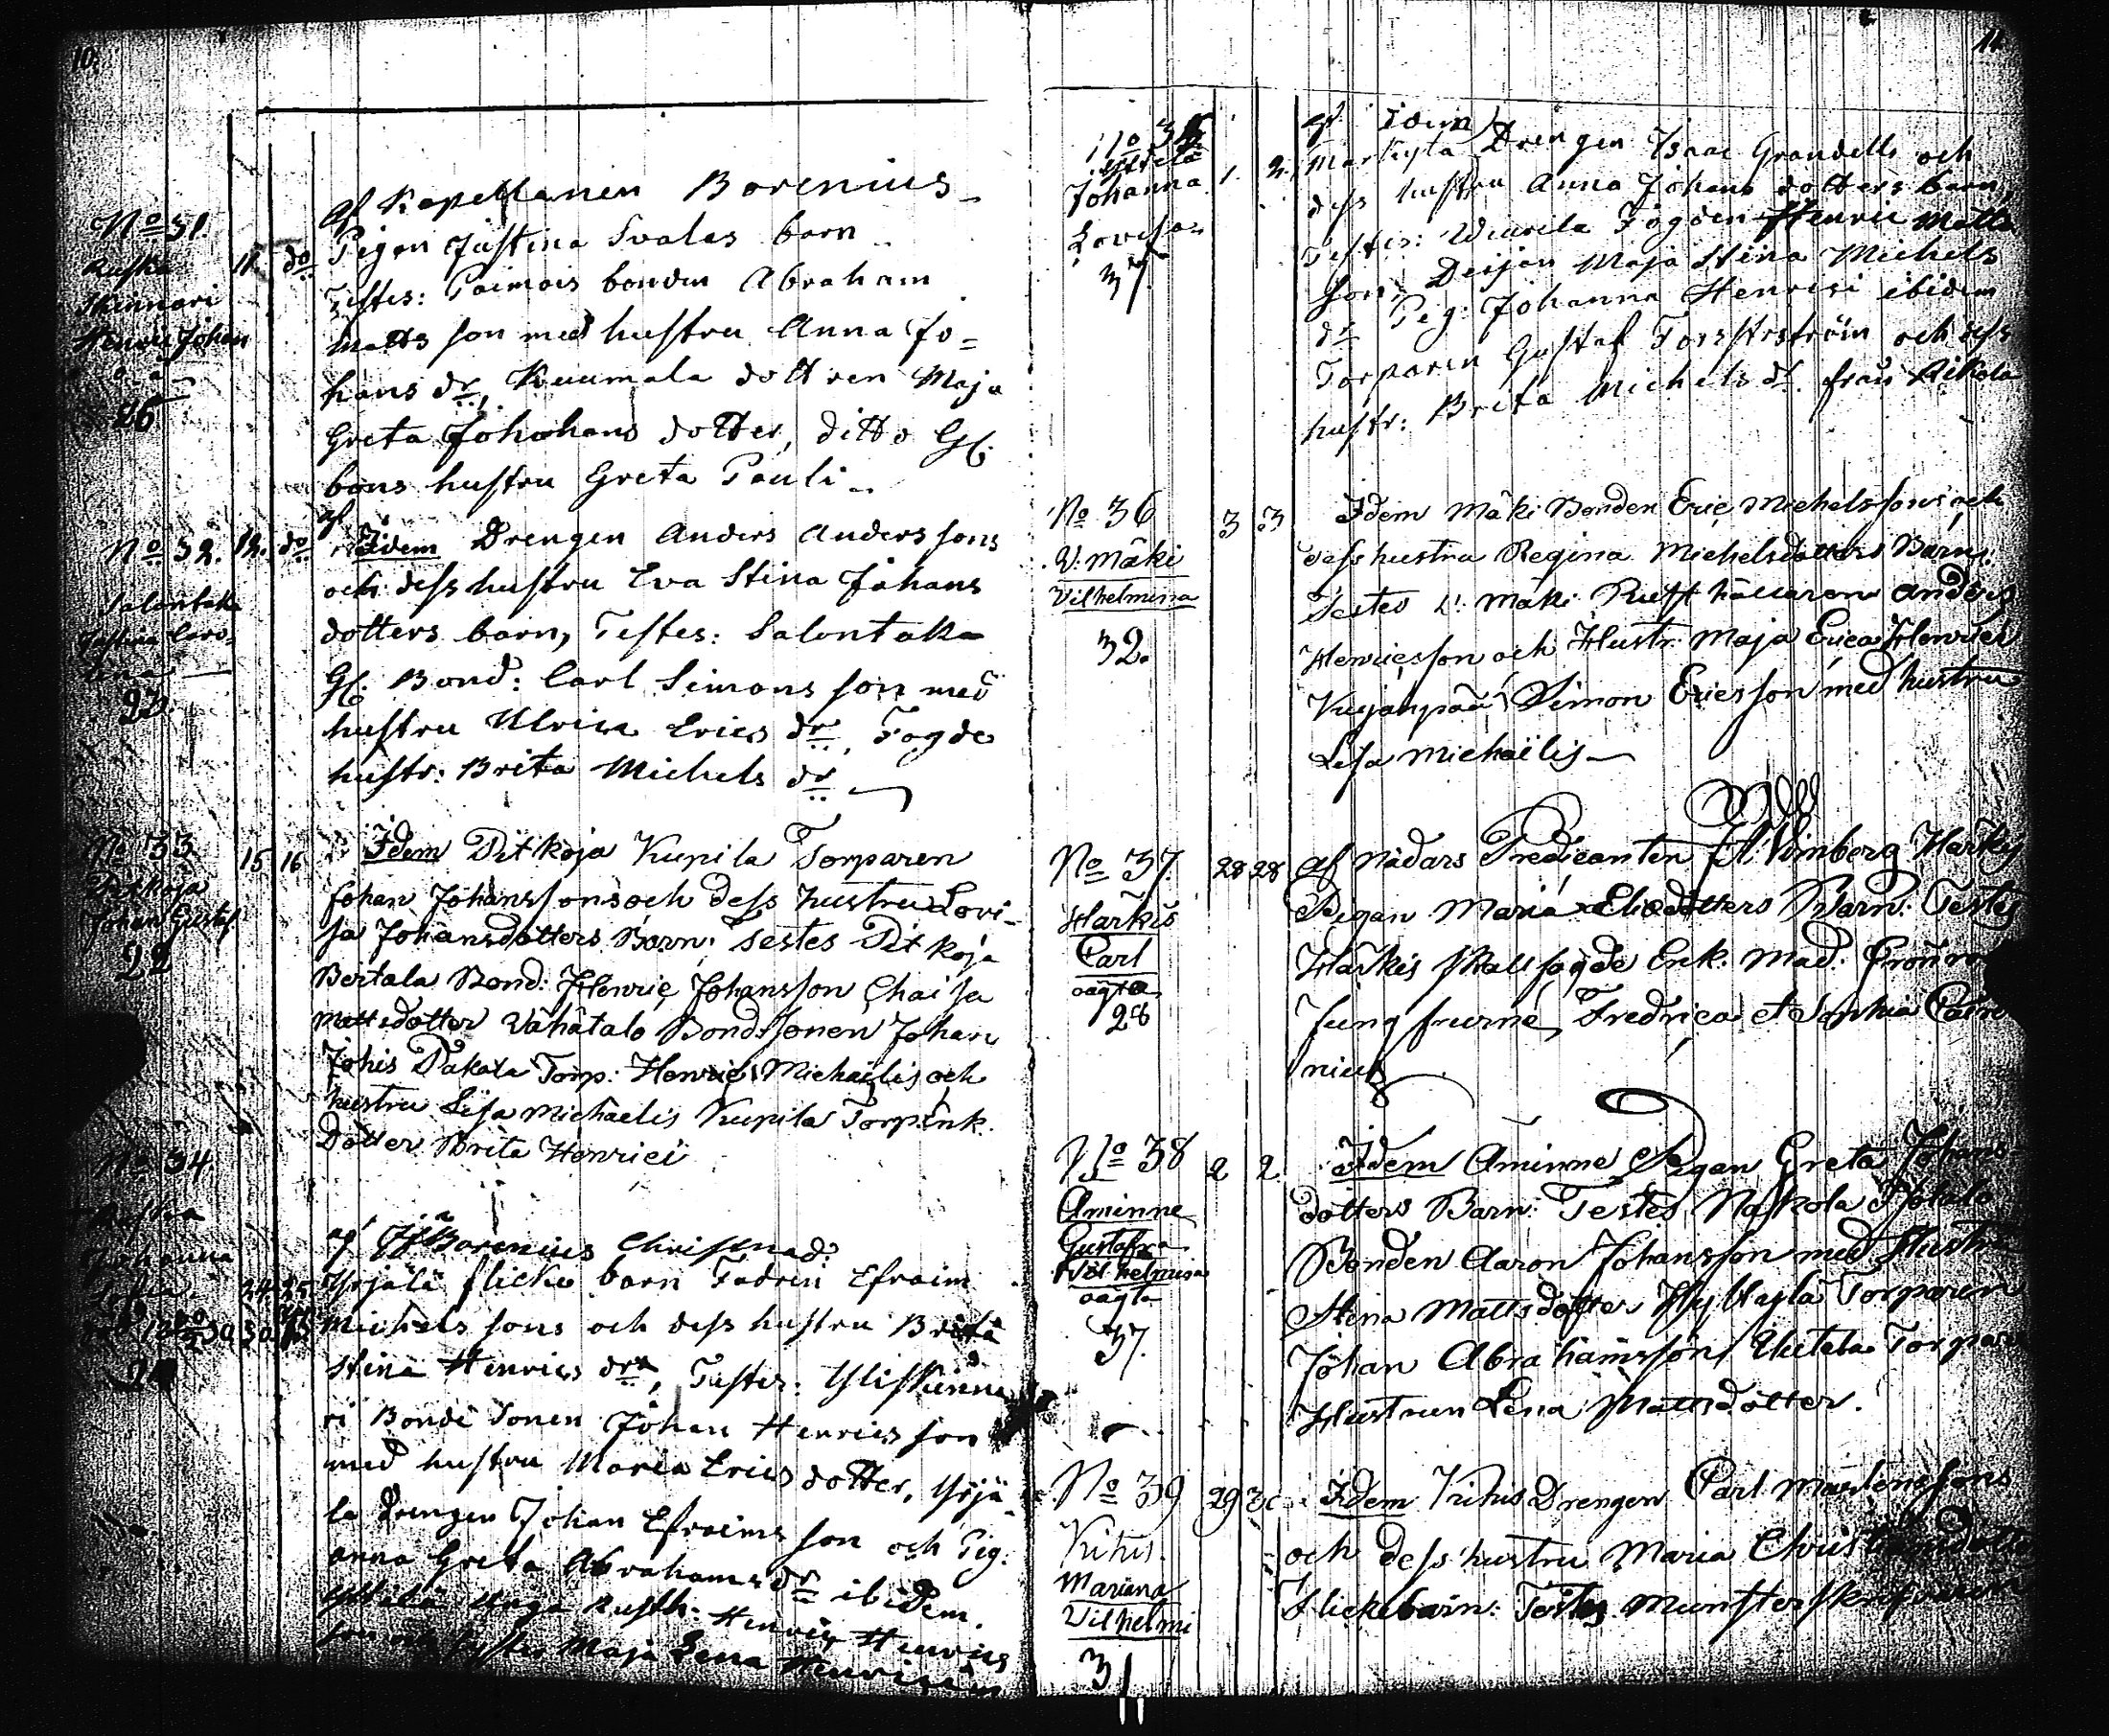 10.
No 31.
Ruska
Skinnari
Henric Johan
o. ä.
26
11. do
af Kapellanen Borenius
Pigan Justina Svalas barn
Testes: Paimais bonden Abraham
Matts son med hustru Anna Jo=
hans dr, Kuumala dottren Maja
Greta Johohans dotter, ditto Gl.
bons hustru Greta Pauli
No 32. 12. do
Salontaka
Justina Caro=
lina
23.
af Idem Drengen Anders Anders sons
och dess hustru Eva Stina Johans
dotters barn, Testes: Salontaka
Gl. Bond: Carl Simons son med
hustru Ulrica Erics dr, Fogde
hustr: Brita Michels dr
No 33 15 16
Ditkoja
Johan Gustaf
22
Idem Ditkoja Kupila Torparen
Johan Johanssons och dess hustru Lovi-
sa Johansdotters Barn: Testes Ditkoja
Bertala Bond: Henric Johansson Chaisa
Mattsdotter Vähätalo Bondssonen Johan
Johis Takala Torp: Henric Michaelis och
hustru Lisa Michaelis Kupila Torp: Enk.
Dotter Brita Henrici
No 34
Johanna
24 25
24
af H Borenius Christnad.
Yrjälä flicke barn Fadren Efraim
Michels sons och dess hustru Brita
Stina Henrics drs, Testes: Yliskinna
ri Bonde Sonen Johan Henrics son
med hustru Maria Erics dotter, Yrjä
la Drengen Johan Efraims son och Pig:
Anna Greta Abrahams dr ibidem.
Rusth: Henric Henrics
son och syster Maja Lena Henrici
11.
No 35
Johanna
Lovisa
37.
1. 2.
af Idem
Marttyla Drengen Isaac Grandells och
dess hustru Anna Johans dotters barn,
Testes: Wiurila Fogden Henric Matts
son, Deijan Maja Stina Michels
dr Pig: Johanna Henrici ibidem
Torparen Gustaf Forsstrström och dess
hustr: Brita Michels dr. från Rikala
No 36 3 3
V. Mäki
Vilhelmina
32.
Idem Mäki Bonden Eric Michelssons och
dess hustru Regina Michelsdotters Barn:
Testes V: Mäki Rusthållaren Anders
Henricsson och Hustr: Maja Erica Henrici
Kujanpää Simon Ericsson med hustru
Lisa Michaëlis
No 37. 28 28
Harkis
Carl
oägta
28
af Nådars Predicanten Fl. Limberg Harkis
Pigan Maria Eliedotters Barn: Testes
Harkis Stallfogde Enk: Mad:
Jungfrurne, Fredrica et Sophia
nius
No 38 2 2
Åminne
Gustafva
Vilhelmina
oägta
37.
Idem Åminne Pigan Greta Johans-
dotters Barn: Testes
Bonden Aaron Johansson med Hustru
Stina Mattsdotter Torparen
Johan Abrahamsson, Torpare
Hustrun Lena Mattsdotter.
No 39 29 30
Kihis.
Mariana
Vilhelmi
31
Idem Kihis Drengen Carl Martenssons
och dess hustru Maria Christiansdotte
Flickebarn: Testes Munsterskrifvaren